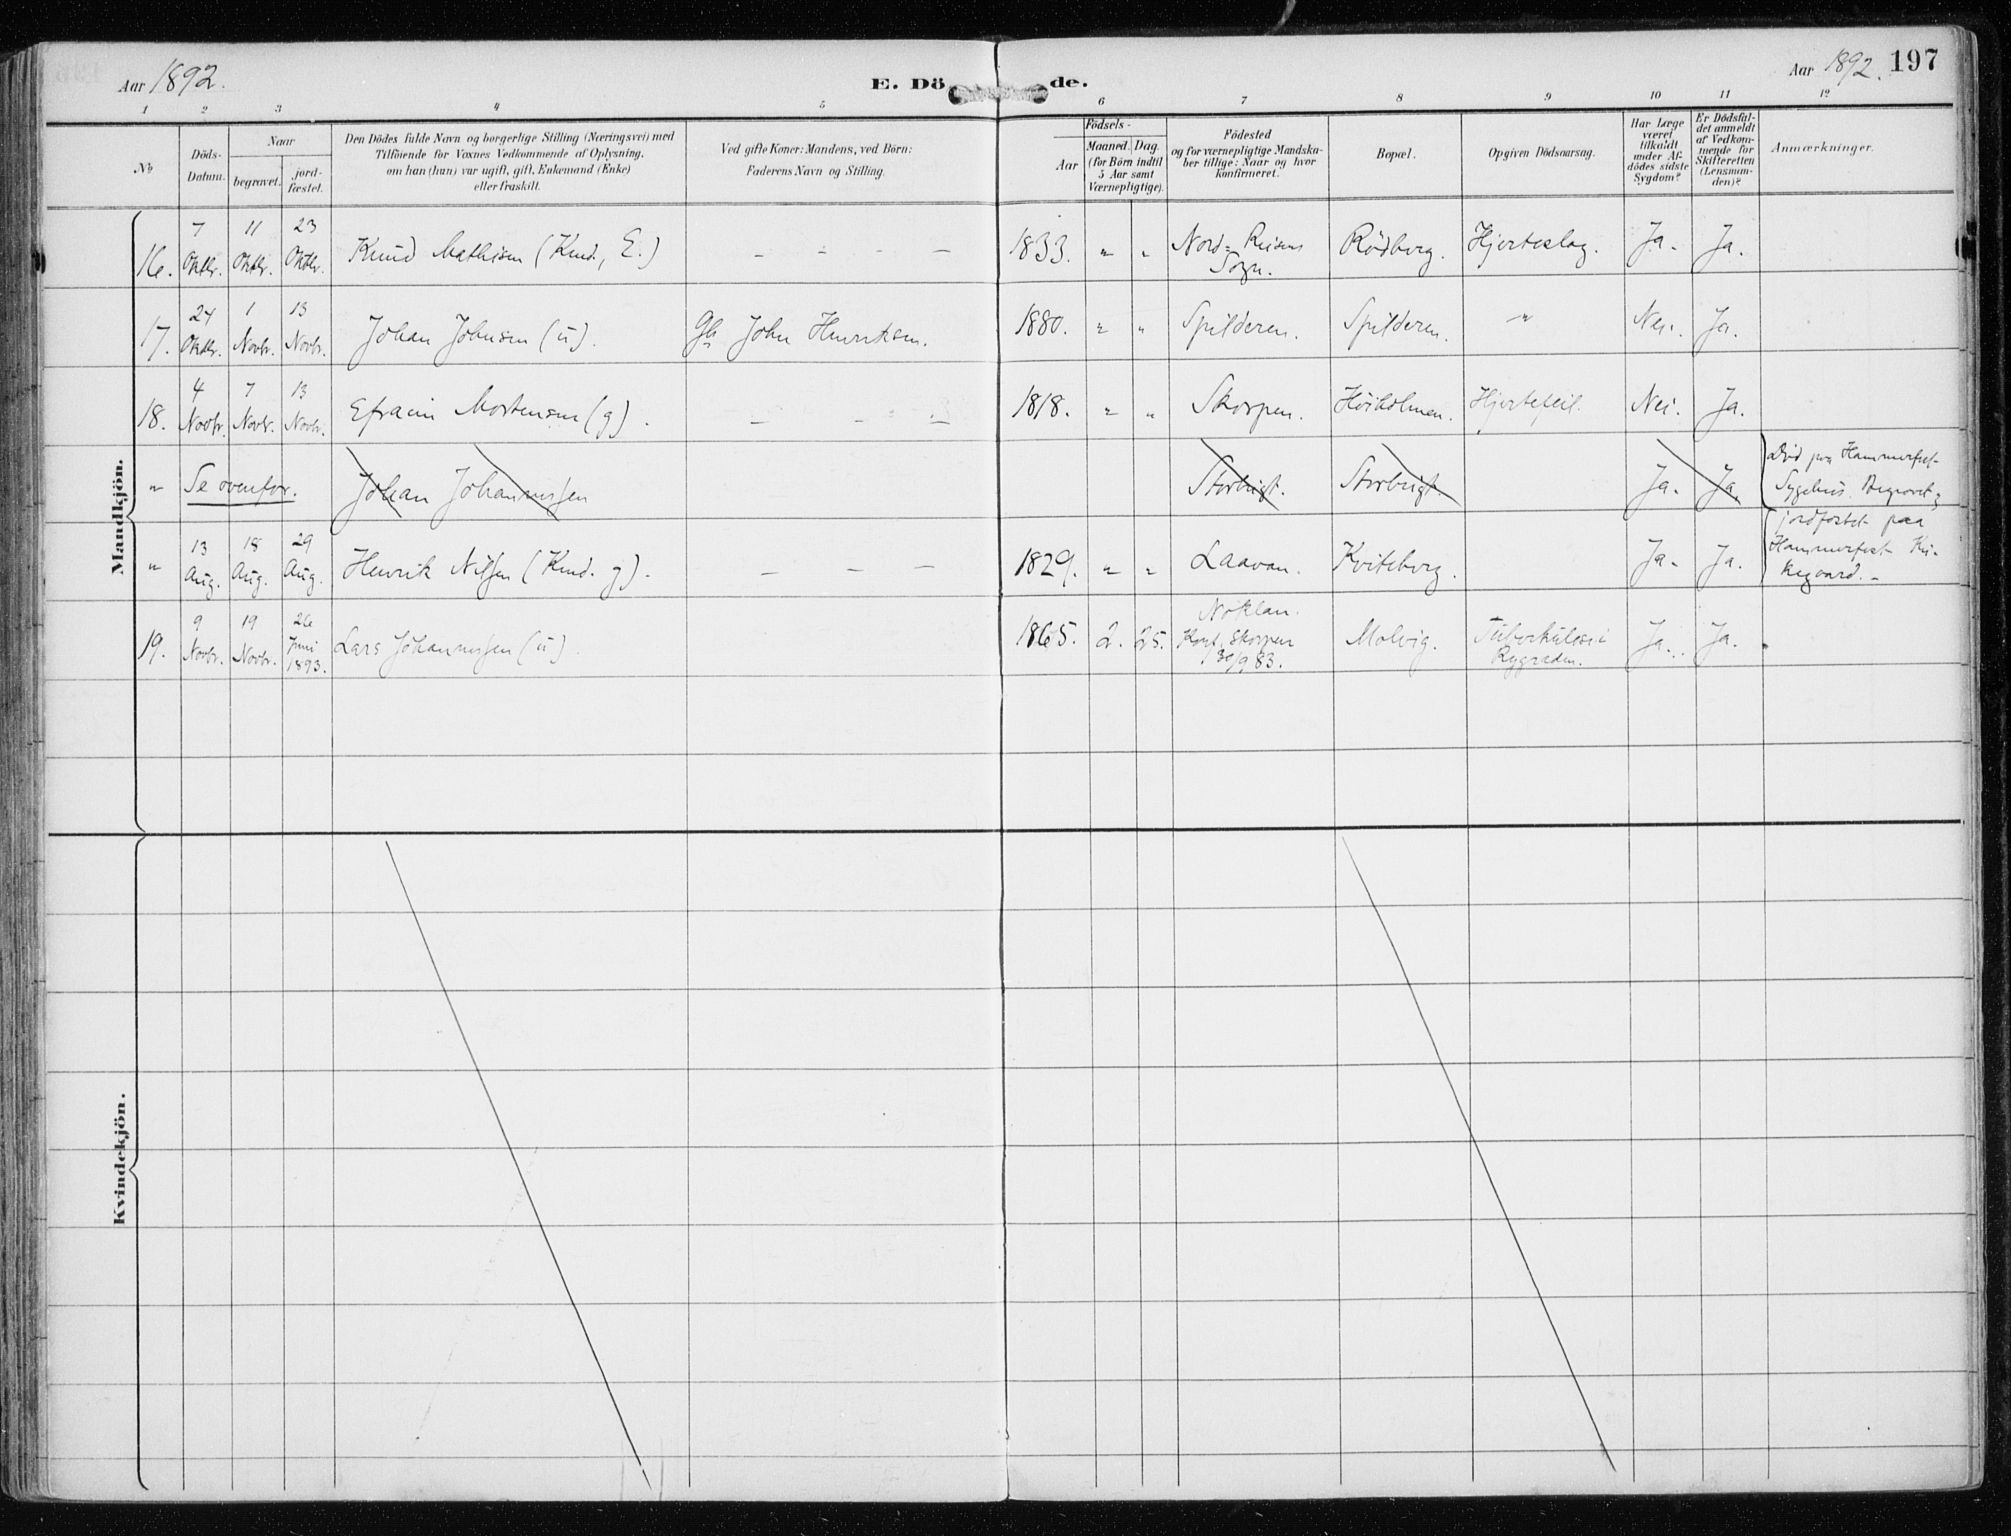 Aar 1892.
E. Dö de.
Aar 1892. 197
1 2 3 4 5 6 7 8 9 10 11 12
No
Döds-
Datum.
Naar
begravet.
jord-
fæstet.
Den Dödes fulde Navn og borgerlige Stilling (Næringsvei) med
Tilföiende for Voxnes Vedkommende af Oplysning,
om han (hun) var ugift, gift, Enkemand (Enke)
eller fraskilt.
Ved gifte Koner: Mandens, ved Börn:
Faderens Navn og Stilling.
Födsels-
Aar
Maaned. Dag.
(for Börn indtil
5 Aar samt
Værnepligtige).
Födested
og for værnepligtige Mandska-
ber tillige: Naar og hvor
konfirmeret.
Bopæl.
Opgiven Dödsaarsag.
Har Læge
været
tilkaldt
under Af-
dödes sidste
Sygdom?
Er Dödsfal-
det anmeldt
af Vedkom-
mende for
Skifteretten
(Lensman-
den)?
Anmærkninger.
Mandkjön.
16. 7 Oktbr. 11 Oktbr. 23 Oktbr. Knud Mathisen (Kmd., E.) - - - - 1833. " " Nord-Reisens Sogn. Rödberg. Hjerteslag. Ja. Ja.
17. 24 Oktbr. 1 Novbr. 13 Novbr. Johan Johnsen (u). John Henriksen. 1880. " " Spilderen. Spilderen. " Nei. Ja.
18. 4 Novbr. 7 Novbr. 13 Novbr. Efraim Mortensen (g). - - - - 1818. " " Skorpen. Höiholmen. Hjertefeil. Nei. Ja.
" Se ovenfor. Johan Johannessen Storbugt. Storbugt. Ja. Ja. Död paa Hammerfest
Sygehus. Begravet &
" 13 Aug. 18 Aug. 29 Aug. Henrik Nilsen (Kmd. g). - - - 1829. " " Laavan. Kviteberg. Ja. Ja. jordfæstet paa
Hammerfest Kir-
kegaard. -
19. 9 Novbr. 19 Novbr. 26 Juni 1893. Lars Johannessen (u). 1865. 2. 25. Noklan.
Konf. Skorpen
30/9 83. Molvig. Tuberkulose i
Rygraden. Ja. Ja.
Kvindekjön.